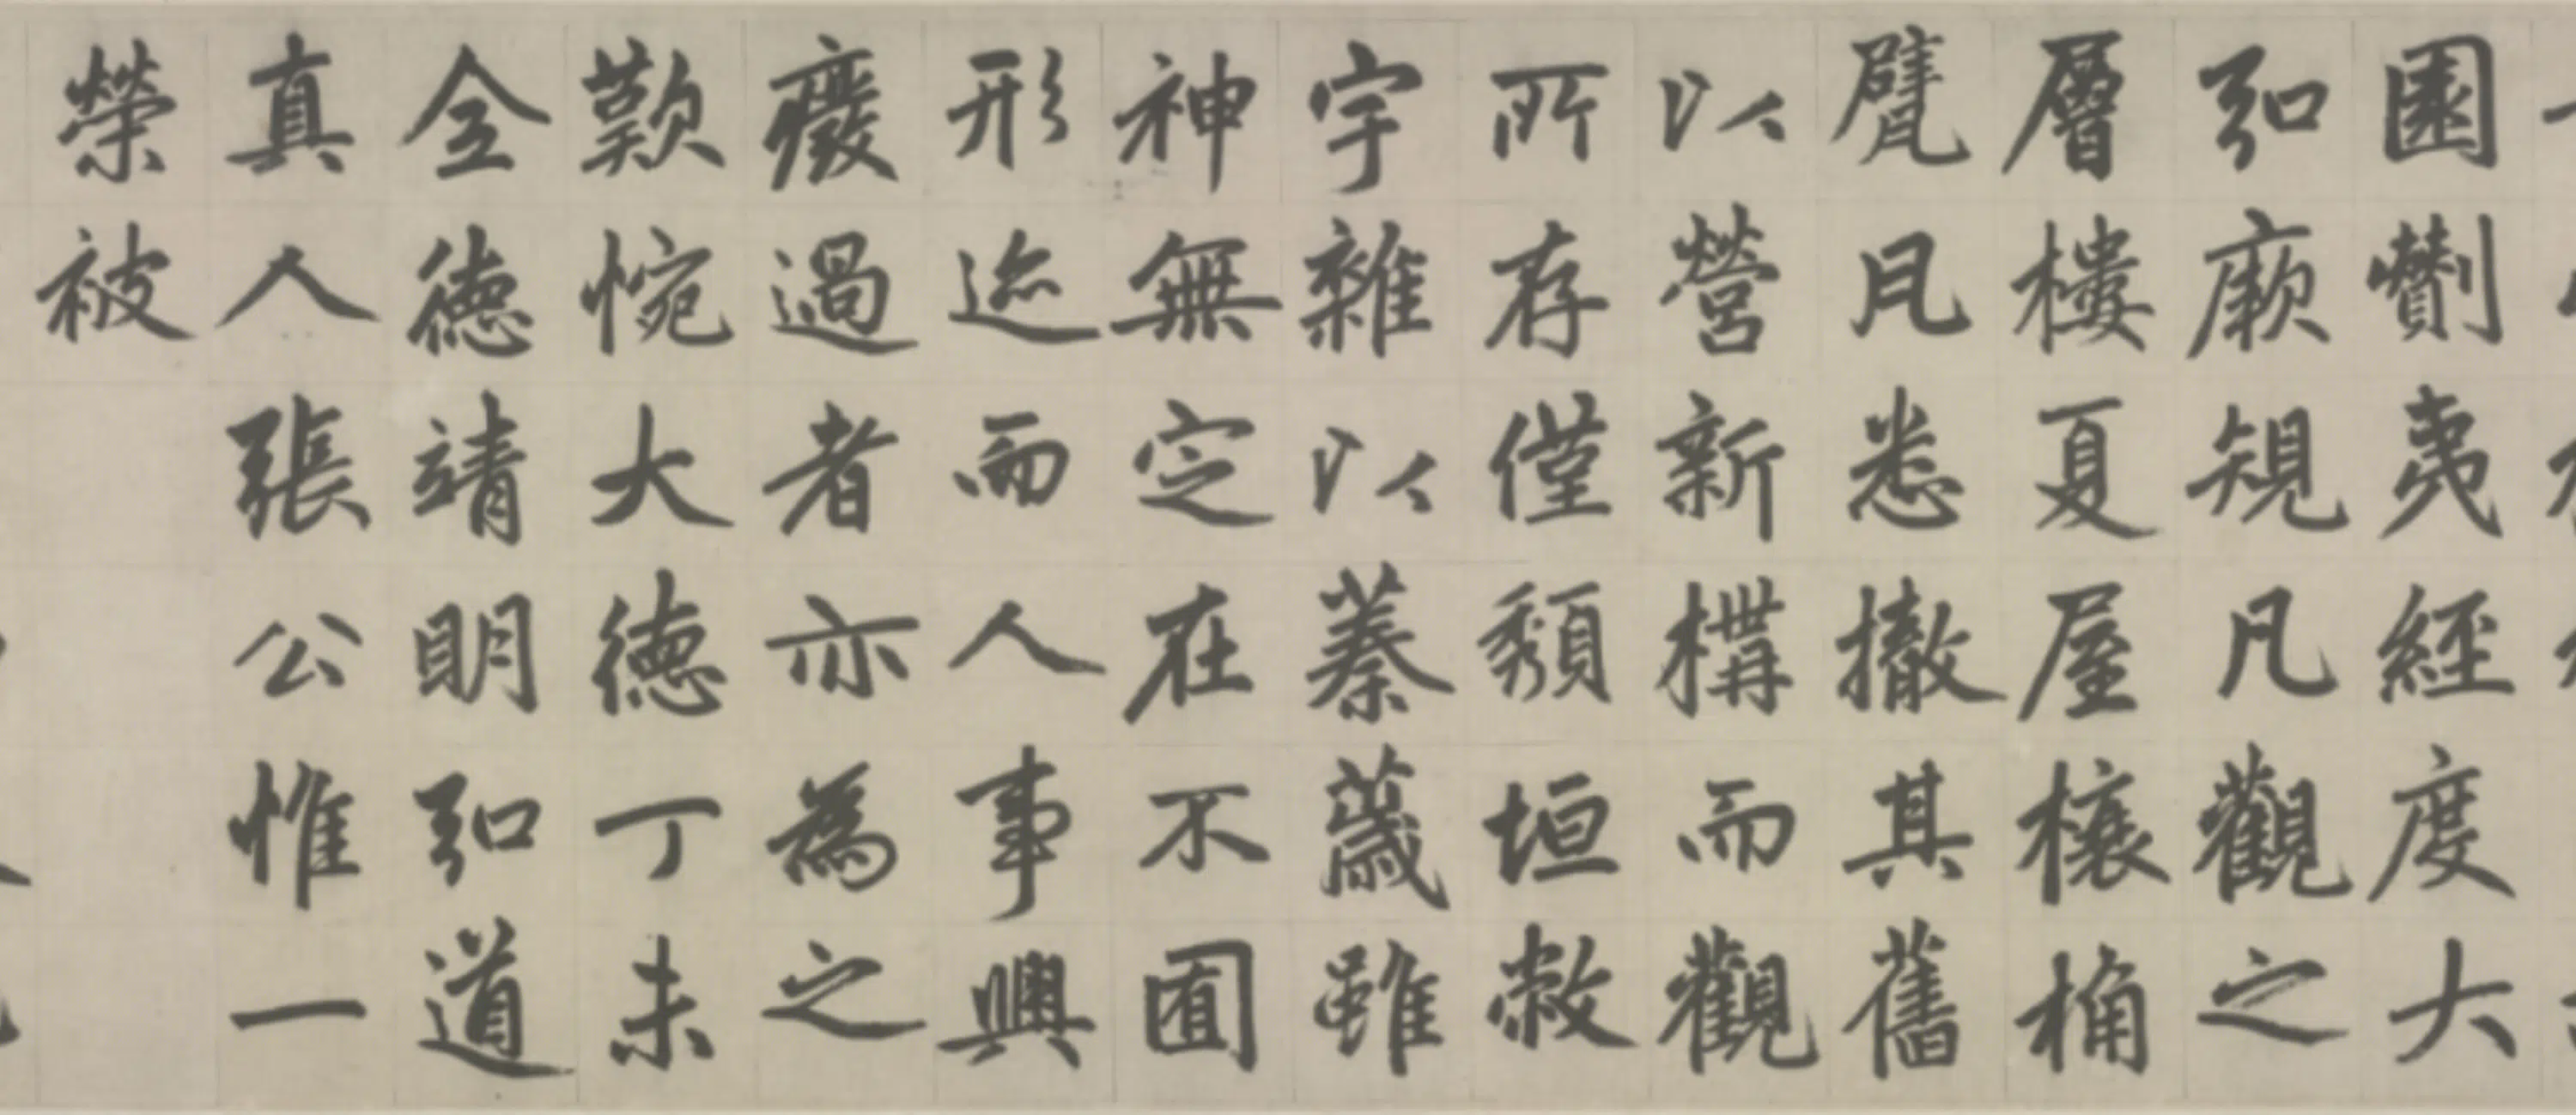 園劗夷經度大
弘厥規凡觀之
層樓夏屋榱桷
甓瓦悉撤其舊
以營新構而觀
所存僅頹垣敝
宇雜以蓁薉雖
神無定在不囿
形迹而人事興
癈過者亦為之
歎惋大德丁未
全德靖明弘道
真人張公惟一
榮被